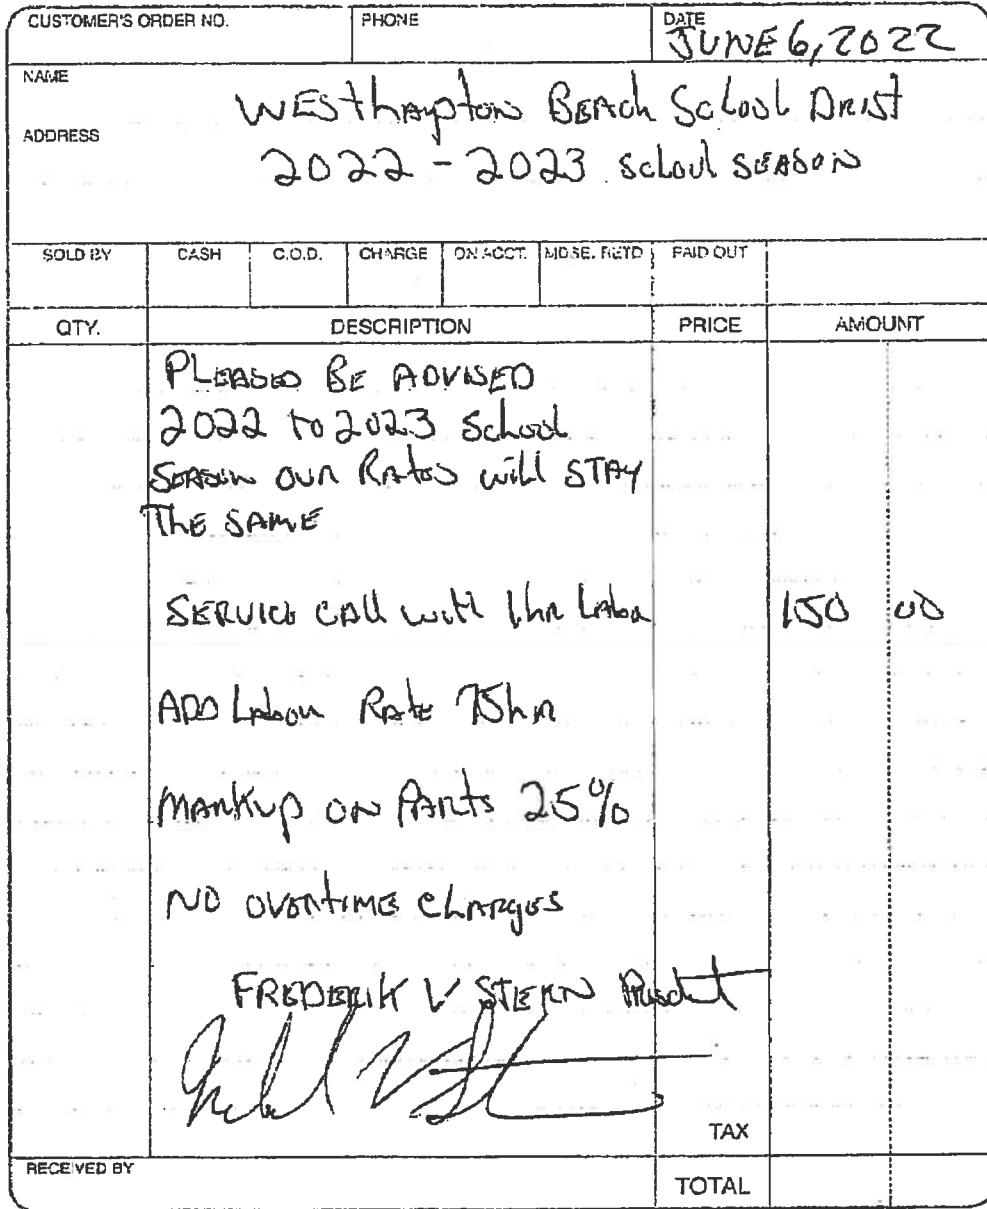 CUSTOMER'S ORDER NO. PHONE DATE
JUNE 6, 2022
NAME
WESthampton BEAch School Drist
ADDRESS
2022 - 2023 school SEASON
SOLD BY CASH C.O.D. CHARGE ON ACCT. MDSE. RETD PAID OUT
QTY. DESCRIPTION PRICE AMOUNT
PLEASED BE ADVISED
2022 to 2023 School
SEASON OUR Rates will STAY
ThE SAME
SERVICE CALL with 1hr Labor 150 00
ADD Labour Rate 75hr
MARKUP ON PARts 25%
NO OVERtIME ChARges
FREDERIK V STERN President
TAX
RECEIVED BY
TOTAL